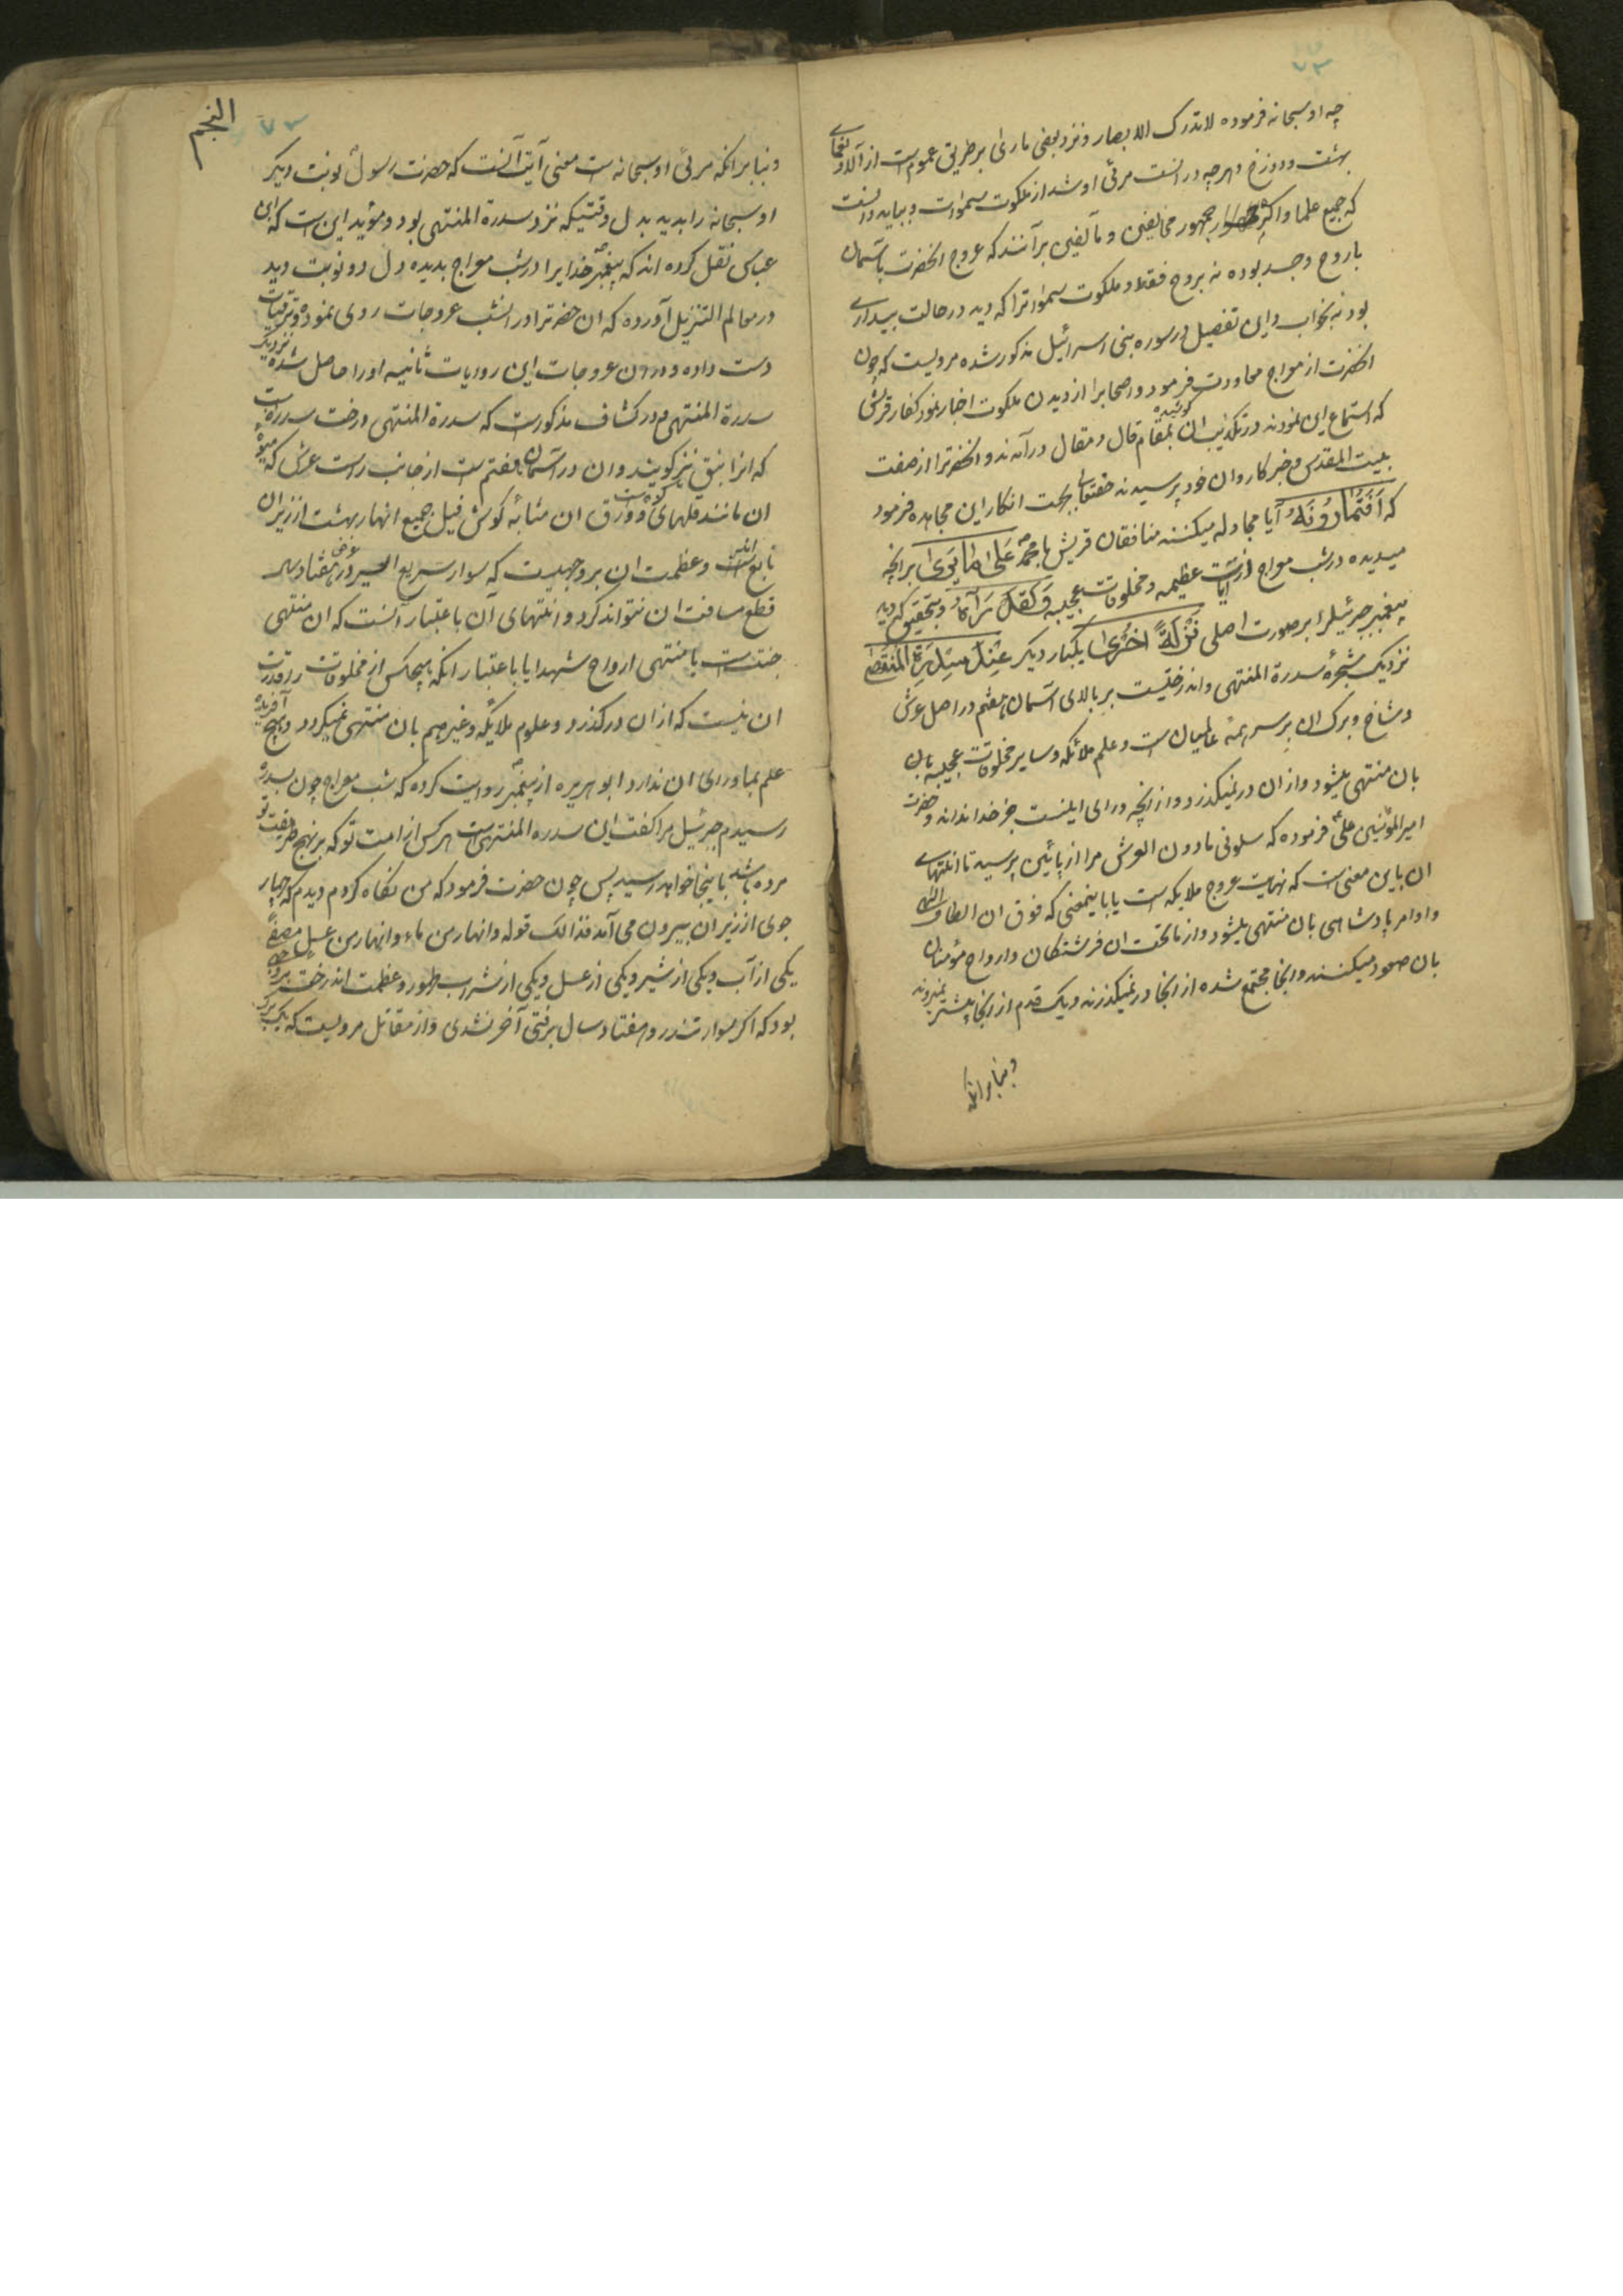 ۷۲
چه او سبحانه فرموده لا تدرک الابصار و نزد بعضی ما رأی بر طریق عموم است از آلاء و نعمای
بهشت و دوزخ و هرچه در انست مرئی او شد از ملکوت سموات و بباید دانست
که جمیع علما و اکثر جمهور مخالفین و مآلفین برآنند که عروج انحضرت باسمان
با روح و جسد بوده نه بروح فقط و ملکوت سموات را که دید در حالت بیداری
بود نه بخواب و این تفصیل در سوره بنی اسرائیل مذکور شده مرویست که چون
انحضرت از معراج معاودت فرمود و اصحابرا از دیدن ملکوت اخبار نمود کفار قریش
که استماع این نمودند در تکذیب ان کوشیده بمقام قال و مقال درآمدند و انحضرترا از صفت
بیت المقدس و خبر کاروان خود پرسیدند حقتعالی بجهت انکار این مجاهده فرمود
که أَفَتُمَارُونَهُ آیا مجادله میکنند منافقان قریش با محمد عَلَى مَا يَرَى بر انچه
میدیده در شب معراج از آیات عظیمه و مخلوقات عجیبه وَلَقَدْ رَآهُ و بتحقیق که دید
پیغمبر جبرئیلرا بر صورت اصلی نَزْلَةً أُخْرَى یکبار دیگر عِنْدَ سِدْرَةِ الْمُنْتَهَى
نزدیک شجره سدرة المنتهی و اندرختیست بر بالای آسمان هفتم در اصل عرش
و شاخ و برک ان بر سر همه عالمیان است و علم ملائکه و سایر مخلوقات عجیبه بان
بان منتهی میشود و از ان در نمیکذرد و از انچه ورای اینست جز خدا نداند و حضرت
امیرالمؤمنین علی فرموده که سلونی ما دون العرش مرا از پائین پرسید تا انتهای
ان باین معنی است که نهایت عروج ملایکه است یا باینمعنی که فوق ان الطاف الهی
و اوامر پادشاهی بان منتهی میشود و از ما تحت ان فرشتکان و ارواح مؤمنان
بان صعود میکنند و انجا مجتمع شده از انجا در نمیکذرند و یک قدم از انجا پیشتر نمیروند
و بنا برانکه
النجم
۷۳
و بنا برانکه مرئی او سبحانه است معنی آیت آنست که حضرت رسول نوبت دیکر
او سبحانه را بدید بدل وقتیکه نزد سدرة المنتهی بود و مؤید این است که ابن
عباس نقل کرده اند که پیغمبر خدایرا در شب معراج بدیده دل دو نوبت دید
در معالم التنزیل آورده که ان حضرترا در انشب عروجات روی نموده و ترقیات
دست داده و در ان عروجات این رویات ثانیه اورا حاصل شده نزدیک
سدرة المنتهی و در کشاف مذکورست که سدرة المنتهی درخت سدره است
که انرا نبق نیز کویند و ان در آسمان هفتم است از جانب راست عرش که میوه
ان مانند قلهای و ورق ان مثابه کوش فیل جمیع انهار بهشت از زیر ان
نابع است و عظمت ان بر وجهیست که سوار سریع السیر در عرض هفتاد سال
قطع مسافت ان نتواند کرد و انتهای آن باعتبار آنست که ان منتهی
جنت است یا منتهی ارواح شهدا یا باعتبار انکه هیچکس از مخلوقات را قدرت
ان نیست که از ان در کذرد و علوم ملایکه و غیرهم بان منتهی میکردد و هیچ آفریده
علم بماورای ان ندارد ابو هریره از پیغمبر روایت کرده که شب معراج چون بسدره
رسیدم جبرئیل مرا کفت این سدره المنتهی است هر کس از امت تو که بر نهج طریقت تو
مرده باشد باینجا خواهد رسید پس چون حضرت فرمود که من نکاه کردم دیدم که چهار
جوی از زیر ان بیرون می آمد فذالک قوله و انهار من ماء و انهار من عسل مصفی
یکی از آب و یکی از شیر و یکی از عسل و یکی از شراب طهور و عظمت اندرخت بر وجهی
بود که اکر سوار تندرو هفتاد سال برفتی آخر نشدی و از مقاتل مرویست که یک برک